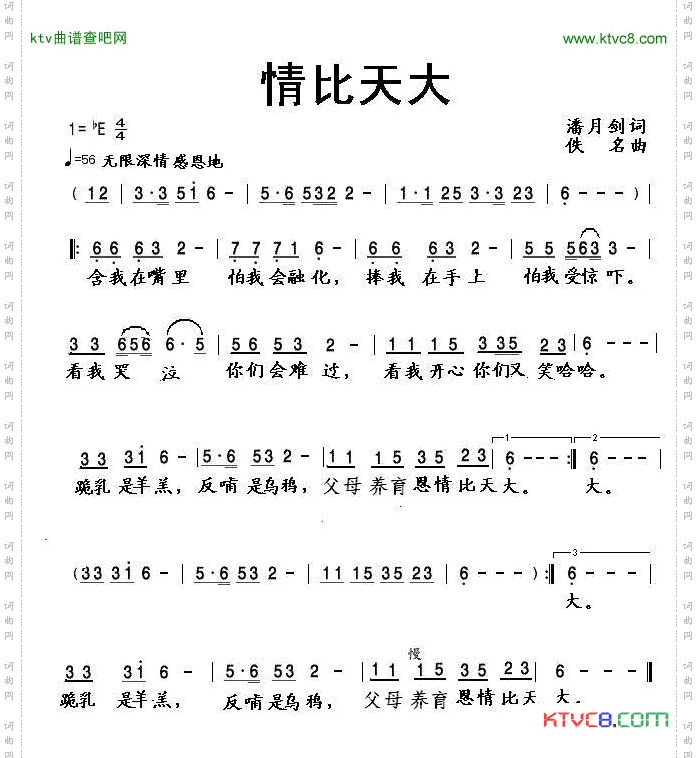 ktv曲谱查吧网 www.ktvc8.com
情比天大
1=♭E 4/4 潘月剑词
♩=56 无限深情 感恩地 佚 名曲
( 12 | 3·3 51 6 - | 5·6 532 2 - | 1·1 25 3·3 23 | 6 - - - )
|: 6 6 6 3 2 - | 7 7 7 1 6 - | 6 6 6 3 2 - | 5 5 563 3 - |
含我在嘴里 怕我会融化， 捧我 在手上 怕我受惊吓。
3 3 656 6·5 | 5 6 5 3 2 - | 1 1 1 5 3 35 2 3 | 6 - - - |
看我哭 泣 你们会难过， 看我开心你们又 笑哈哈。
1 2
3 3 31 6 - | 5·6 53 2 - | 1 1 1 5 35 2 3 | 6 - - - :| 6 - - - |
跪乳 是羊羔， 反哺 是乌鸦， 父母 养育 恩情比天大。 大。
3
(33 31 6 - | 5·6 53 2 - | 11 15 35 23 | 6 - - - ) :| 6 - - - |
大。
慢
3 3 31 6 - | 5·6 53 2 - | 1 1 1 5 35 2 3 | 6 - - - ||
跪乳 是羊羔， 反哺 是乌鸦， 父母 养育 恩情比天 大。
KTVC8.com
词曲网